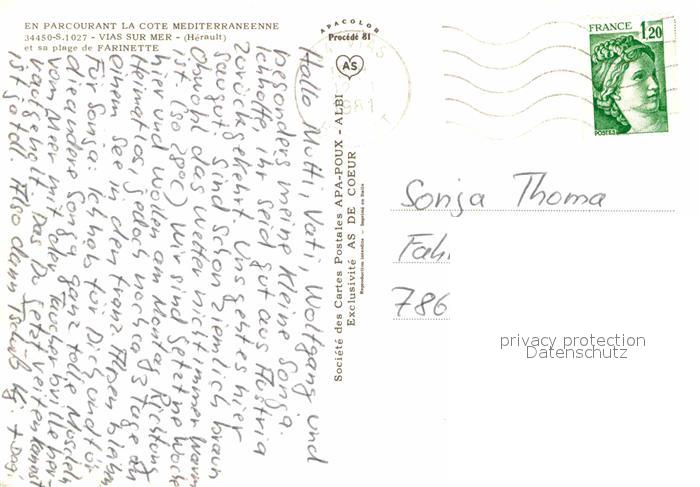 EN PARCOURANT LA COTE MEDITERRANEENNE
34450-S.1027 - VIAS SUR MER - (Hérault)
et sa plage de FARINETTE
APACOLOR
Procédé 81
AS
Société des Cartes Postales APA-POUX - ALBI
Exclusivité AS DE COEUR
Reproduction interdite - Imprimé en Italie
Hallo Mutti, Vati, Wolfgang und
besonders meine kleine Sonja.
Ich hoffe, ihr seid gut aus Austria
zurückgekehrt. Uns geht es hier
saugut. Sind schon ziemlich braun
Obwohl das Wetter nicht immer warm
ist. (so 28°C) Wir sind jetzt ne Woche
hier und wollen am Montag Richtung
Heimat los, jedoch noch ca 3 Tage an
einem See in den franz Alpen bleiben
Für Sonja: Ich hab für Dich und für
die andere Sonja ganz tolle Muscheln
vom Meer mit der Taucherbrille her-
aufgeholt. Das Du jetzt reiten kannst
ist ja toll. Also dann Tschüß
VIAS
1981
FRANCE
1,20
POSTES
Sonja Thoma
Fah
786
privacy protection
Datenschutz